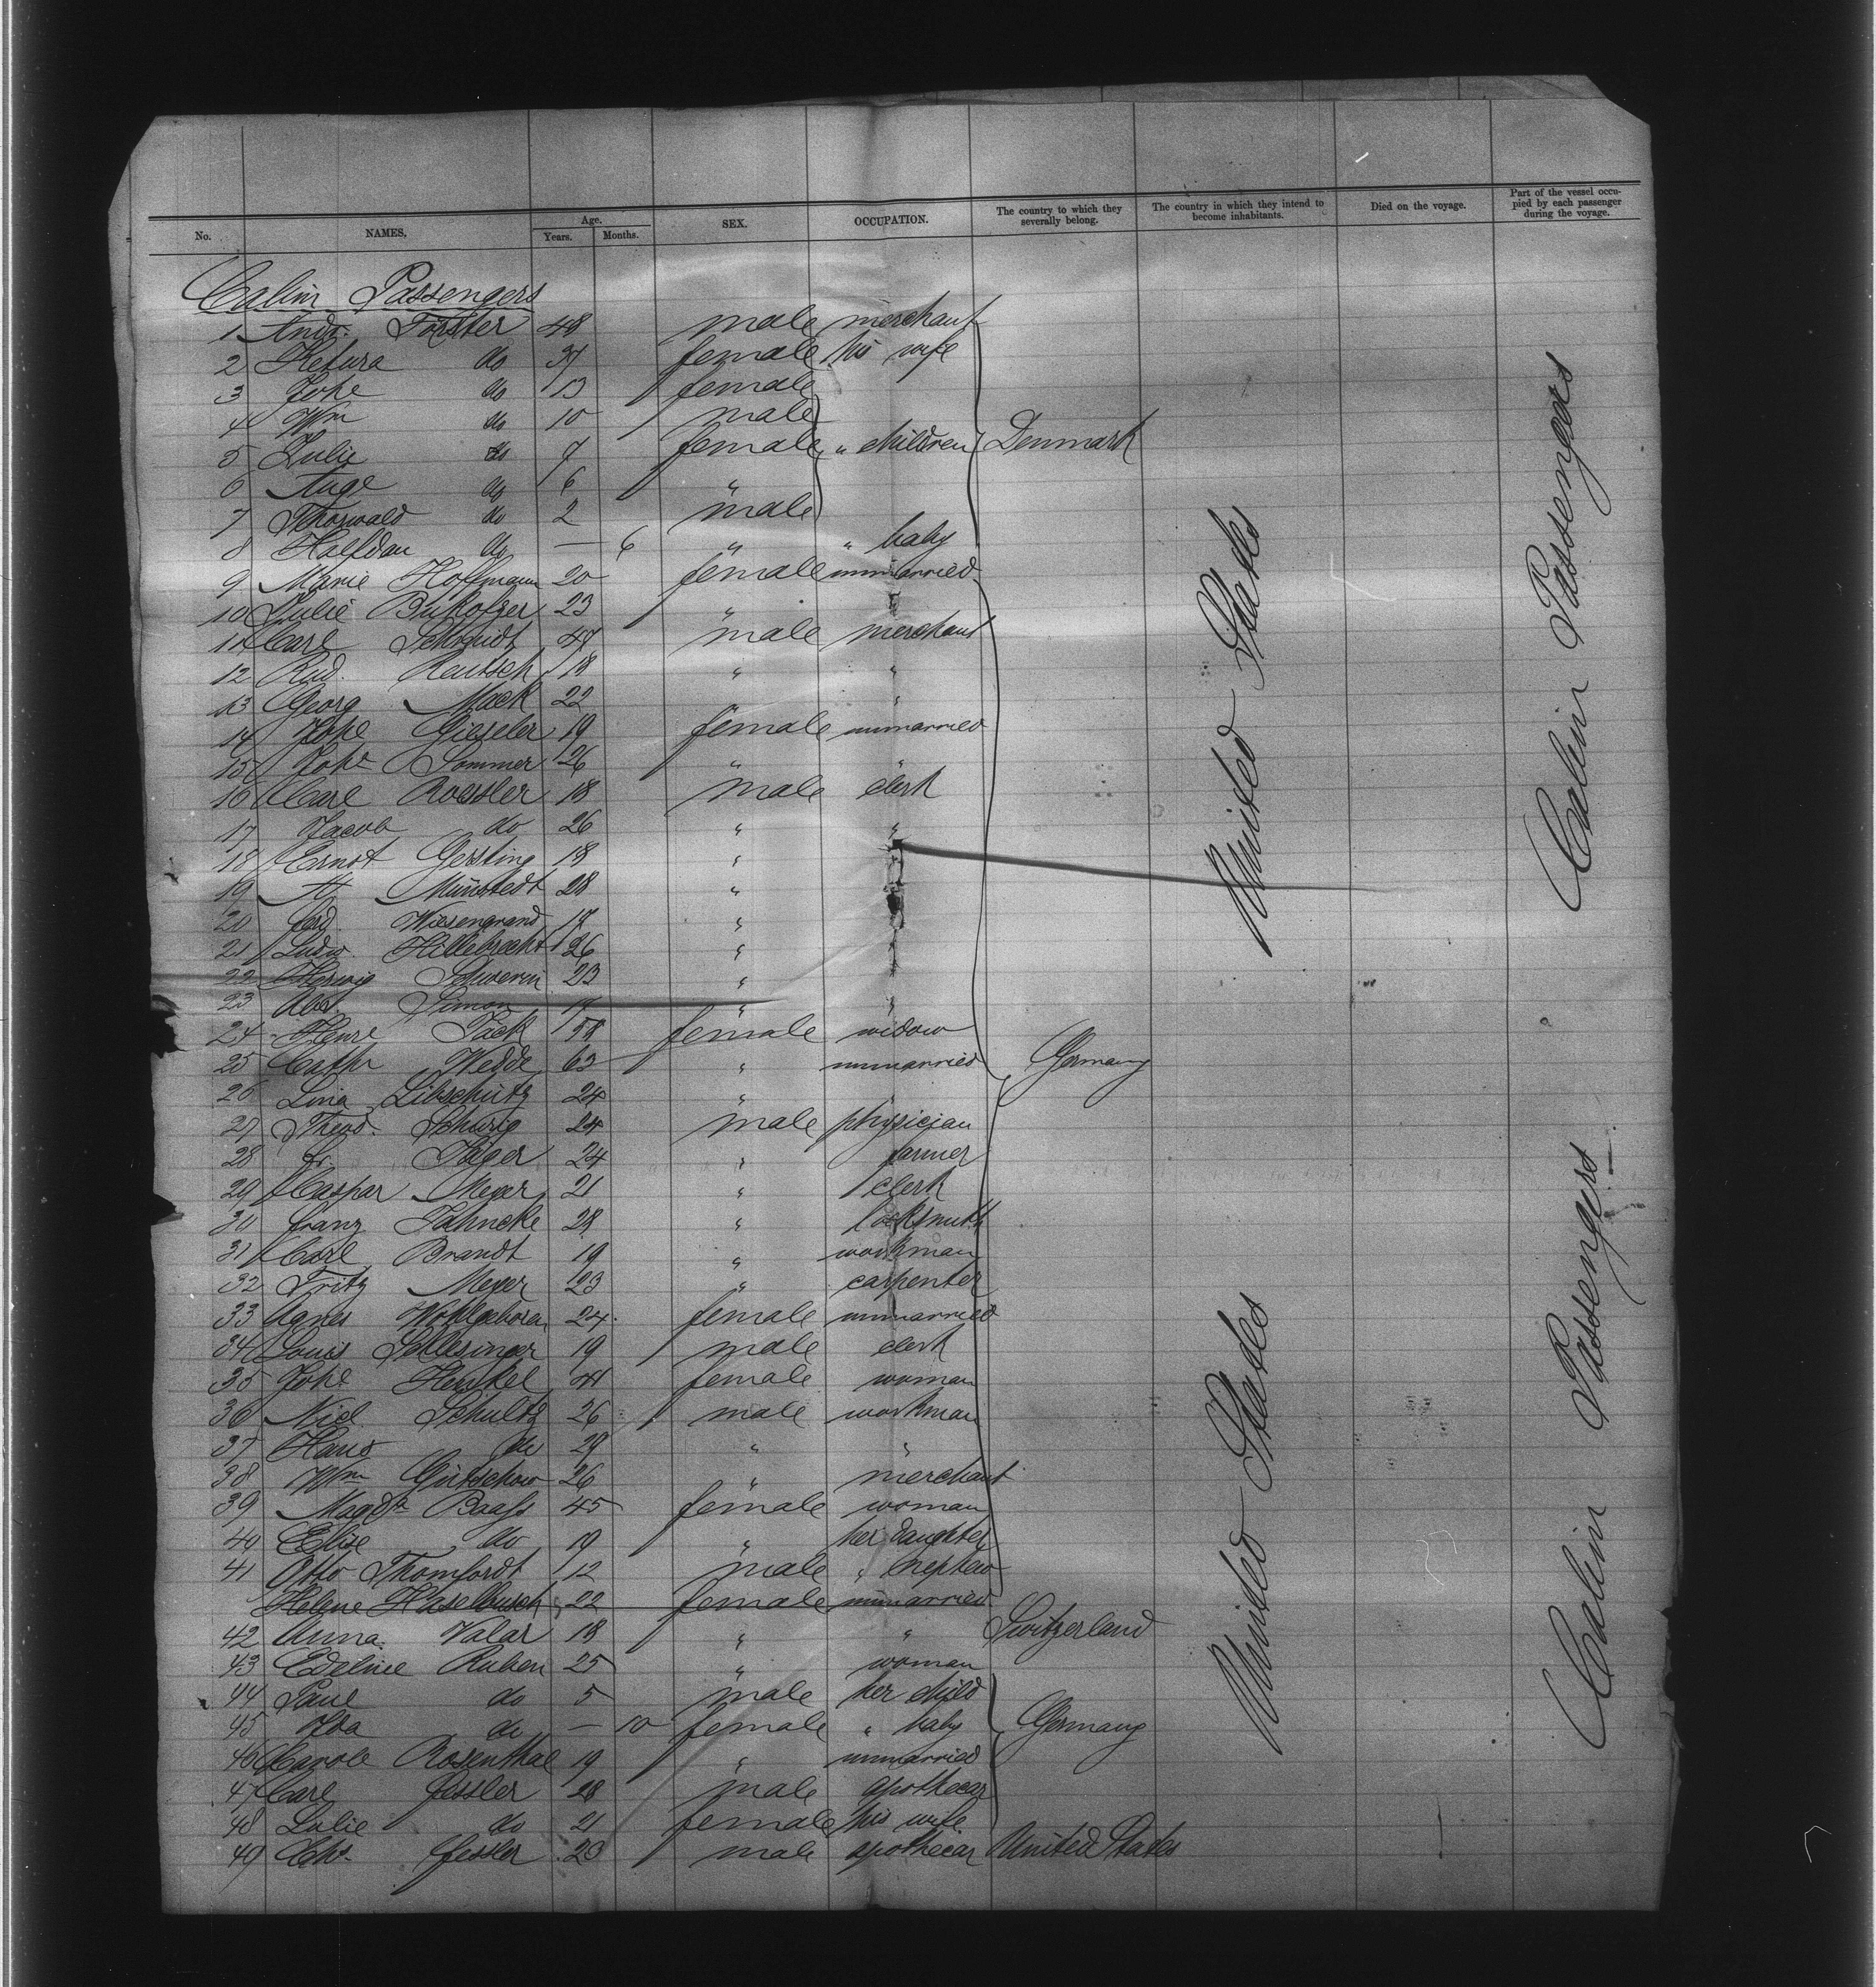 No. NAMES. Age. Years. Months. SEX. OCCUPATION. The country to which they severally belong. The country in which they intend to become inhabitants. Died on the voyage. Part of the vessel occupied by each passenger during the voyage.
Cabin Passengers
1 Andr. Forster 48 male merchant
2 Ketura do 37 female his wife
3 Johe do 13 female
4 Wm do 10 male
5 Julie do 7 female " children Denmark
6 Auge do 6 "
7 Thorwald do 2 male
8 Halfdan do — 6 " " baby
9 Marie Hoffmann 20 female unmarried
10 Julie Bukofzer 23 "
11 Carl Schmidt 47 male merchant
12 Rud. Rentsch 18 " "
13 Georg Mack 22 "
14 Johe Gieseler 19 female unmarried
15 Johe Sommer 26 " "
16 Carl Roessler 18 male clerk
17 Jacob do 26 " "
18 Ernst Gersting 18 "
19 H Münstedt 28 "
20 Ferd. Wiesengrand 17 "
21 Ludw. Hillebrecht 26 "
22 Herwig Schwerin 23 "
23 Simon 17 " "
24 Henre Pack 58 female widow
25 Cathr Wedde 63 " unmarried Germany
26 Lina Libschütz 24 " "
27 Theod. Schurig 24 male physician
28 Fr. Jäger 24 " farmer
29 Caspar Meyer 21 " clerk
30 Franz Jahncke 28 " locksmith
31 Carl Brandt 19 " workman
32 Fritz Meyer 23 " carpenter
33 Agnes Wohlgeboren 24 female unmarried
34 Louis Schlesinger 19 male clerk
35 Johe Henkel 41 female woman
36 Nicl. Schultz 26 male workman
37 Hans do 29 " "
38 Wm Gürtschow 26 " merchant
39 Magda Baass 45 female woman
40 Elise do 19 " her daughter
41 Otto Thomfordt 12 male " nephew
Helene Haselbusch 22 female unmarried
42 Anna Valar 18 " " Switzerland
43 Edeline Ruben 25 " woman
44 Paul do 5 male her child
45 Ida do — 10 female " baby Germany
46 Carole Rosenthal 19 " unmarried
47 Carl Fessler 28 male apothecar
48 Julie do 21 female his wife
49 Chs. Fessler 23 male apothecar United States
United States
United States
Cabin Passengers
Cabin Passengers